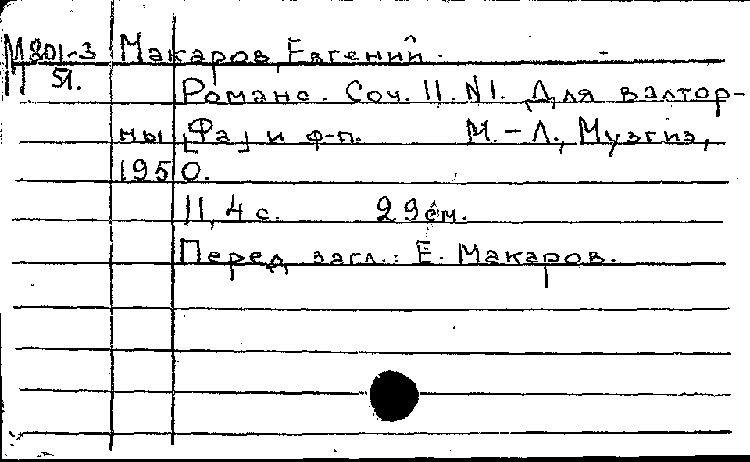 М 801-3 Макаров, Евгений.
51.
Романс. Соч. 11. N1. Для валтор-
ны [Фа] и ф-п. М.-Л., Музгиз,
1950.
11, 4 с. 29 см.
Перед загл.: Е. Макаров.